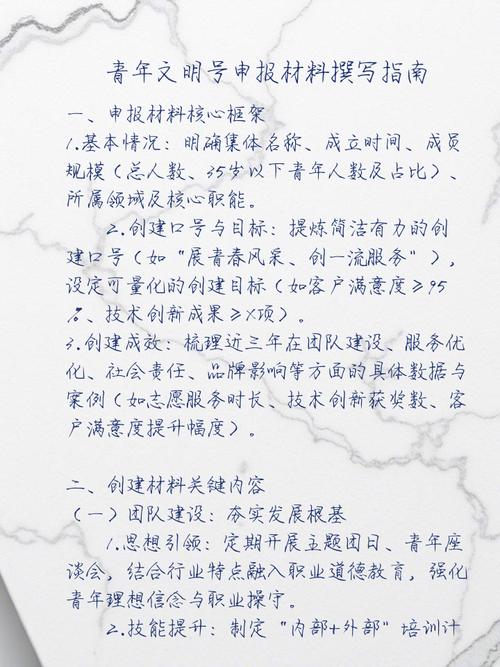 青年文明号申报材料撰写指南
一、申报材料核心框架
1.基本情况：明确集体名称、成立时间、成员
规模（总人数、35岁以下青年人数及占比）、
所属领域及核心职能。
2.创建口号与目标：提炼简洁有力的创
建口号（如“展青春风采、创一流服务”），
设定可量化的创建目标（如客户满意度≥95
%、技术创新成果≥X项）。
3.创建成效：梳理近三年在团队建设、服务优
化、社会责任、品牌影响等方面的具体数据与
案例（如志愿服务时长、技术创新获奖数、客
户满意度提升幅度）。
二、创建材料关键内容
（一）团队建设：夯实发展根基
1.思想引领：定期开展主题团日、青年座
谈会，结合行业特点融入职业道德教育，强化
青年理想信念与职业操守。
2.技能提升：制定“内部+外部”培训计